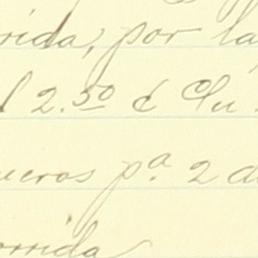 rrida, por la
2.50 c/u
ueros pª. 2 d
orrida